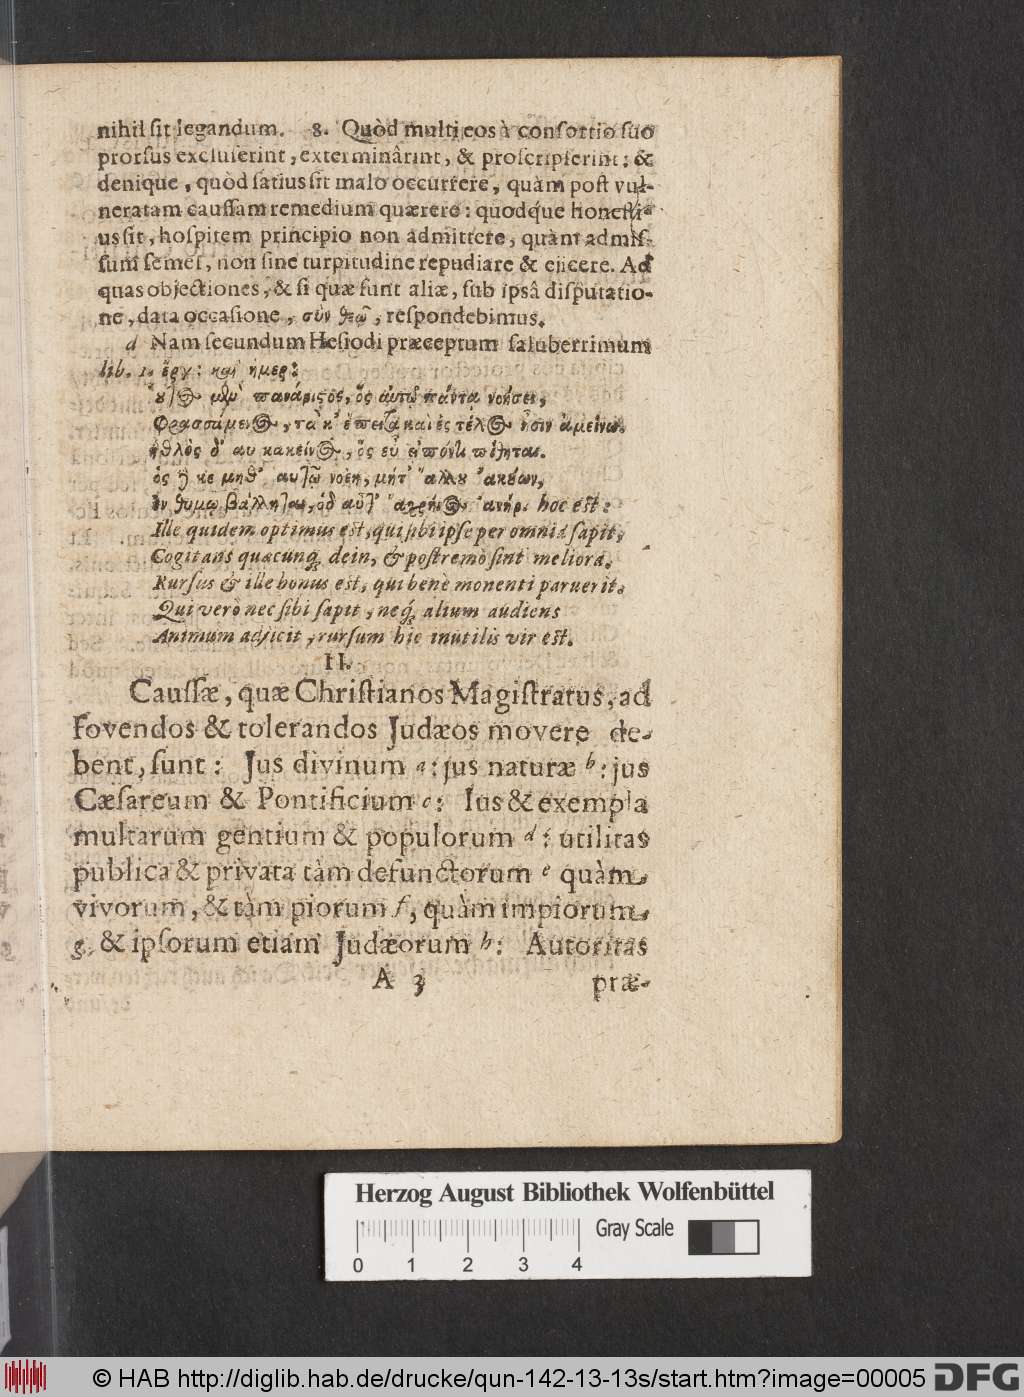 nihil sit legandum. 8. Quòd multi eos à consortio suo
prorsus excluserint, exterminârint, & proscripserint: &
denique, quòd satius sit malo occurrere, quàm post vul-
neratam caussam remedium quærere: quodq́ue honesti-
us sit, hospitem principio non admittere, quàm admis-
sum semel, non sine turpitudine repudiare & eiicere. Ad
quas objectiones, & si quæ sunt aliæ, sub ipsâ disputatio-
ne, data occasione, σὺν θεῷ, respondebimus.
d Nam secundum Hesiodi præceptum saluberrimum
lib. 1. ἔργ: καὶ ἡμερ:
Οὗτος μὲν πανάριστος, ὃς αὑτῷ πάντα νοήσει,
Φρασσάμενος, τά κ' ἔπειτα καὶ ἐς τέλος ᾖσιν ἀμείνω.
ἐσθλὸς δ' αὖ κἀκεῖνος, ὃς εὖ εἰπόντι πίθηται.
ὃς δέ κε μηθ' αὑτῷ νοέῃ, μήτ' ἄλλου ἀκούων,
ἐν θυμῷ βάλληται, ὁδ' αὖτ' ἀχρήιος ἀνήρ. hoc est:
Ille quidem optimus est, qui sibi ipse per omnia sapit,
Cogitans quacunq; dein, & postremò sint meliora.
Rursus & ille bonus est, qui benè monenti paruerit.
Qui verò nec sibi sapit, neq; alium audiens
Animum adjicit, rursum hic inutilis vir est.
II.
Caussæ, quæ Christianos Magistratus, ad
fovendos & tolerandos Judæos movere de-
bent, sunt: Jus divinum a: jus naturæ b: jus
Cæsareum & Pontificium c: Ius & exempla
multarum gentium & populorum d: utilitas
publica & privata tàm defunctorum e quàm
vivorum, & tàm piorum f, quàm impiorum
g, & ipsorum etiam Judæorum h: Autoritas
A 3 præ-
Herzog August Bibliothek Wolfenbüttel
Gray Scale
0 1 2 3 4
© HAB http://diglib.hab.de/drucke/qun-142-13-13s/start.htm?image=00005 DFG